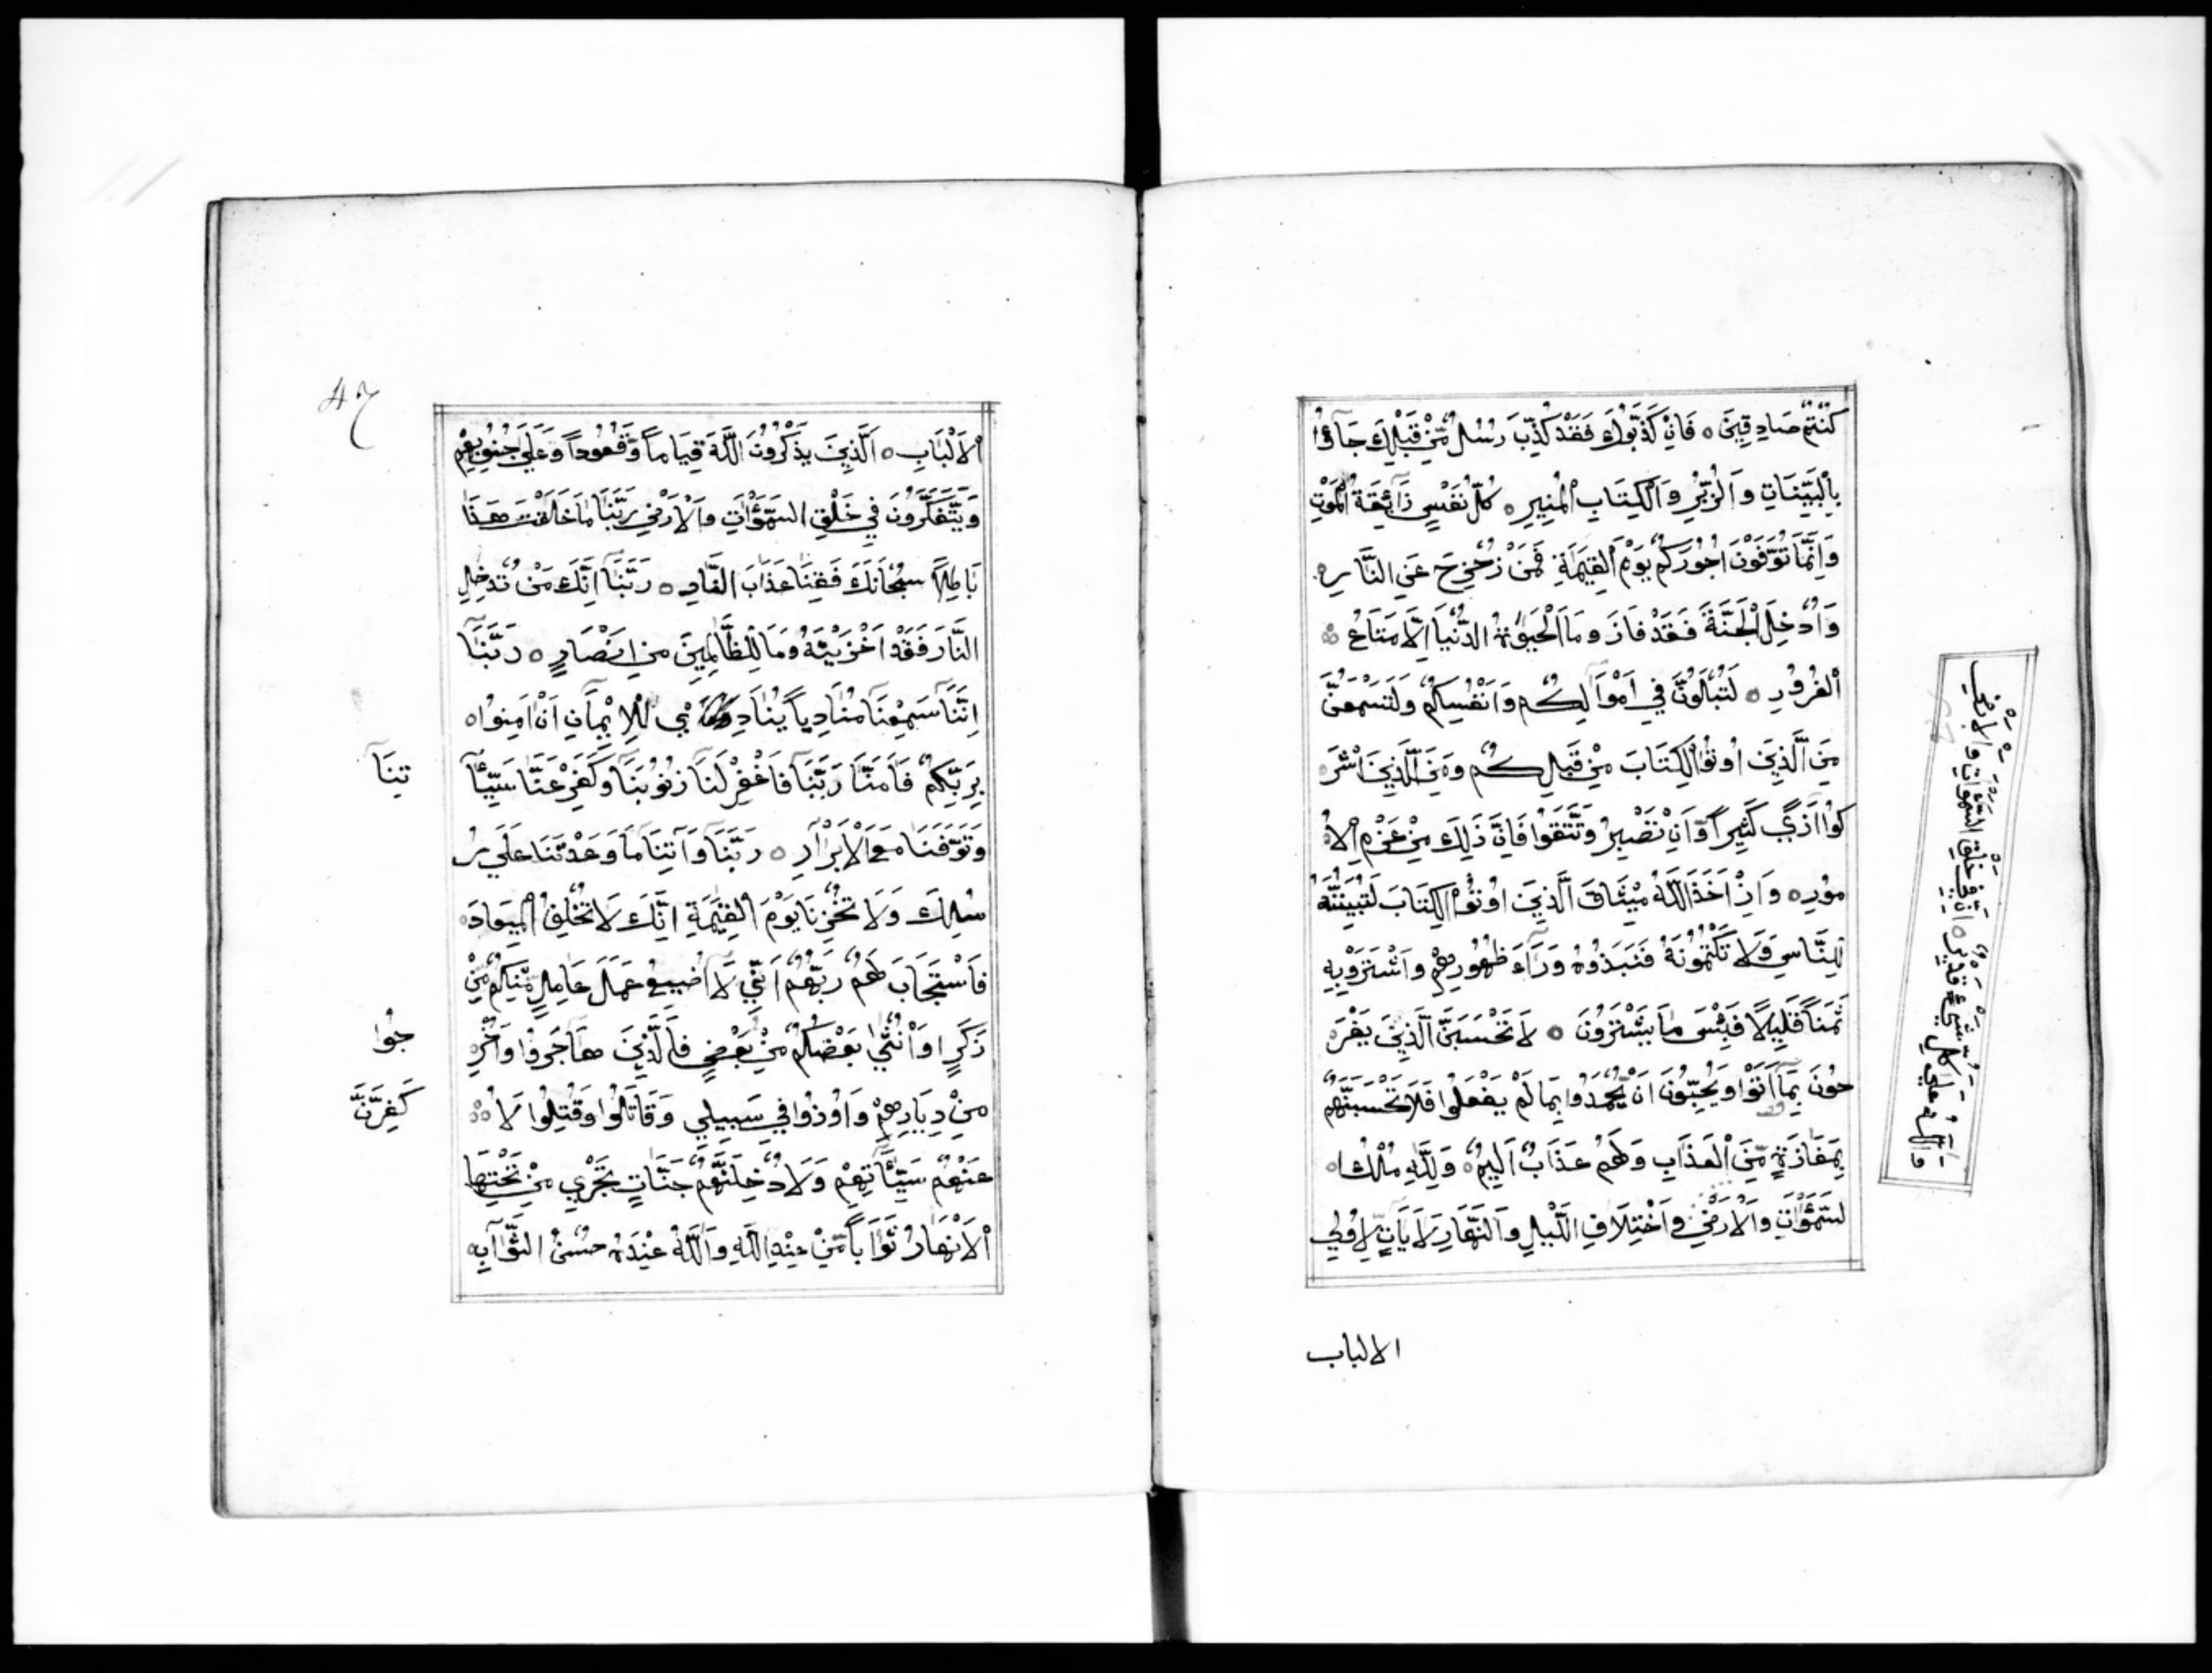 كُنْتُمْ صَادِقِينَ ٥ فَاِنْ كَذَّبُوكَ فَقَدْ كُذِّبَ رُسُلٌ مِّنْ قَبْلِكَ جَآؤُا
بِالْبَيِّنَاتِ وَالزُّبُرِ وَالْكِتَابِ الْمُنِيرِ ٥ كُلُّ نَفْسٍ ذَآئِقَةُ الْمَوْتِ
وَاِنَّمَا تُوَفَّوْنَ اُجُورَكُمْ يَوْمَ الْقِيٰمَةِ فَمَنْ زُحْزِحَ عَنِ النَّارِ
وَاُدْخِلَ الْجَنَّةَ فَقَدْ فَازَ وَمَا الْحَيٰوةُ الدُّنْيَا اِلَّا مَتَاعُ
الْغُرُورِ ٥ لَتُبْلَوُنَّ فِي اَمْوَالِكُمْ وَاَنْفُسِكُمْ وَلَتَسْمَعُنَّ
مِنَ الَّذِينَ اُوتُوا الْكِتَابَ مِنْ قَبْلِكُمْ وَمِنَ الَّذِينَ اَشْرَ
كُوا اَذًي كَثِيراً وَّاِنْ تَصْبِرُ وَتَتَّقُوا فَاِنَّ ذَلِكَ مِنْ عَزْمِ الْاُ
مُورِ ٥ وَاِذْ اَخَذَ اللَّهُ مِيثَاقَ الَّذِينَ اُوتُوا الْكِتَابَ لَتُبَيِّنُنَّهُ
لِلنَّاسِ وَلَا تَكْتُمُونَهُ فَنَبَذُوهُ وَرَآءَ ظُهُورِهِمْ وَاشْتَرَوْ بِهِ
ثَمَناً قَلِيلًا فَبِئْسَ مَا يَشْتَرُونَ ٥ لَا تَحْسَبَنَّ الَّذِينَ يَفْرَ
حُونَ بِمَآ اَتَوْا وَيُحِبُّونَ اَنْ يُّحْمَدُوا بِمَا لَمْ يَفْعَلُوا فَلَا تَحْسَبَنَّهُمْ
بِمَفَازَةٍ مِّنَ الْعَذَابِ وَلَهُمْ عَذَابٌ اَلِيمٌ ٥ وَلِلَّهِ مُلْكُ ا
لسَّمٰوَاتِ وَالْاَرْضِ وَاخْتِلَافِ اللَّيْلِ وَالنَّهَارِ لَاٰيَاتٍ لِّاُولِي
وَاللَّهُ عَلَي كُلِّ شَيْءٍ قَدِيرٌ ٥ اِنَّ فِي خَلْقِ السَّمٰوَاتِ وَالْاَرْضِ
الالباب
47
الْاَلْبَابِ ٥ اَلَّذِينَ يَذْكُرُونَ اللَّهَ قِيَاماً وَّقُعُوداً وَّعَلَي جُنُوبِهِمْ
وَيَتَفَكَّرُونَ فِي خَلْقِ السَّمٰوَاتِ وَالْاَرْضِ رَبَّنَا مَا خَلَقْتَ هَذَا
بَاطِلاً سُبْحَانَكَ فَقِنَا عَذَابَ النَّارِ ٥ رَبَّنَا اِنَّكَ مَنْ تُدْخِلِ
النَّارَ فَقَدْ اَخْزَيْتَهُ وَمَا لِلظَّالِمِينَ مِنْ اَنْصَارٍ ٥ رَبَّنَا
اِنَّنَا سَمِعْنَا مُنَادِياً يُنَادِي لِلْاِيْمَانِ اَنْ اٰمِنُوا
بِرَبِّكُمْ فَاٰمَنَّا رَبَّنَا فَاغْفِرْ لَنَا ذُنُوبَنَا وَكَفِّرْ عَنَّا سَيِّئَا
تِنَا
وَتَوَفَّنَا مَعَ الْاَبْرَارِ ٥ رَبَّنَا وَآتِنَا مَا وَعَدْتَنَا عَلَي رُ
سُلِكَ وَلَا تُخْزِنَا يَوْمَ الْقِيٰمَةِ اِنَّكَ لَا تُخْلِفُ الْمِيعَادَ ٥
فَاسْتَجَابَ لَهُمْ رَبُّهُمْ اَنِّي لَا اُضِيعُ عَمَلَ عَامِلٍ مِّنْكُمْ مِّنْ
ذَكَرٍ اَوْ اُنْثٰي بَعْضُكُمْ مِنْ بَعْضٍ فَالَّذِينَ هَاجَرُوا وَاُخْرِ
جُوا
مِنْ دِيَارِهِمْ وَاُوذُوا فِي سَبِيلِي وَقَاتَلُوا وَقُتِلُوا لَاُ
كَفِّرَنَّ
عَنْهُمْ سَيِّئَاتِهِمْ وَلَاُدْخِلَنَّهُمْ جَنَّاتٍ تَجْرِي مِنْ تَحْتِهَا
الْاَنْهَارُ ثَوَاباً مِّنْ عِنْدِ اللَّهِ وَاللَّهُ عِنْدَهُ حُسْنُ الثَّوَابِ ٥